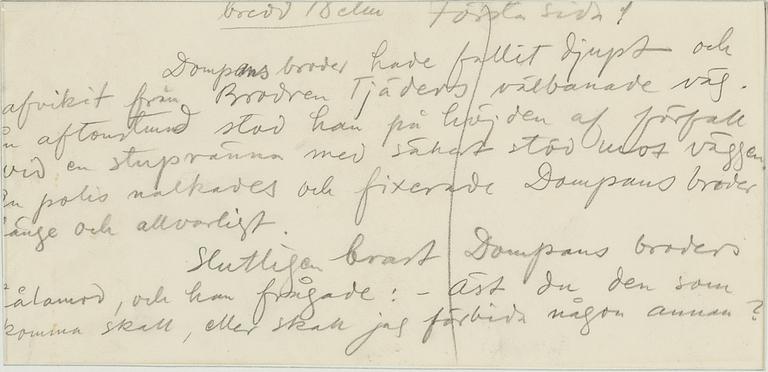 bredd 18 ctm Första sida 1
Dompans broder hade fallit djupt och
afvikit från Brodren Tjäders välbanade väg.
n aftonstund stod han på höjden af förfall
vid en stupränna med säkert stöd mot väggen.
n polis nalkades och fixerade Dompans broder
änge och allvarligt.
Slutligen brast Dompans broders
tålamod, och han frågade: - äst du den som
komma skall, eller skall jag förbida någon annan?